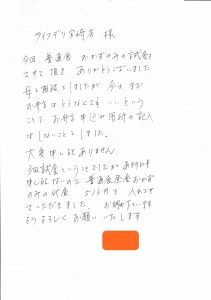 ライフデリ宮崎店 様
今回 普通食 おかずのみの試食を
させて頂き ありがとうございました
母と相談しましたが 今は、まだ
お弁当はとらなくてもいいという
ことで お弁当申み用紙の記入
はしないことにしました。
大変申し訳ありません
今回試食ということでしたが あまりにも
申し訳ないので 普通食昼食おかず
のみの代金 513円を 入れさせ
ていただきました。お納め下さいます
ようよろしくお願いいたします